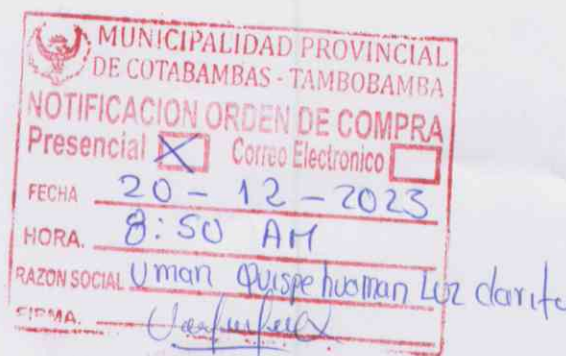 MUNICIPALIDAD PROVINCIAL
DE COTABAMBAS - TAMBOBAMBA
NOTIFICACION ORDEN DE COMPRA
Presencial X Correo Electronico
FECHA 20 - 12 - 2023
HORA. 8:50 AM
RAZON SOCIAL Uman Quispe huaman Luz clarita
FIRMA.